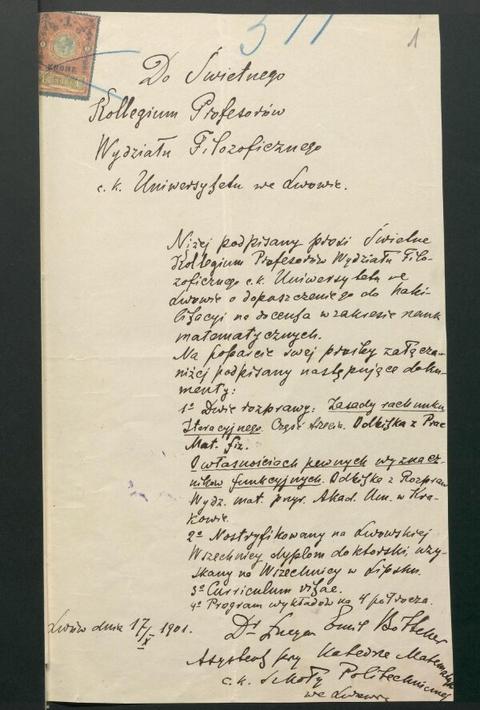 377
1
KRONE
Do Świetnego
Kollegium Profesorów
Wydziału Filozoficznego
c. k. Uniwersytetu we Lwowie.
Niżej podpisany prosi Świetne
Kollegium Profesorów Wydziału Filo-
zoficznego c.k. Uniwersytetu we
Lwowie o dopuszczenie go do habi-
litacyi na docenta w zakresie nauk
matematycznych.
Na poparcie swej prośby załącza
niżej podpisany następujące doku-
menty:
1º Dwie rozprawy: Zasady rachunku
Iteracyjnego. Część trzecia. Odbitka z Prac
Mat. fiz.
O własnościach pewnych wyznacz-
ników funkcyjnych. Odbitka z Rozpraw
Wydz. mat. przyr. Akad. Um. w Kra-
kowie.
2º Nostryfikowany na Lwowskiej
Wszechnicy dyplom doktorski uzy-
skany na Wszechnicy w Lipsku.
3º Curriculum vitae.
4º Program wykładów na 4 półrocza.
Lwów dnia 17/X 1901.
Dr Lucyan Emil Böttcher
Asystent przy Katedrze Matematyki
c. k. Szkoły Politechnicznej
we Lwowie